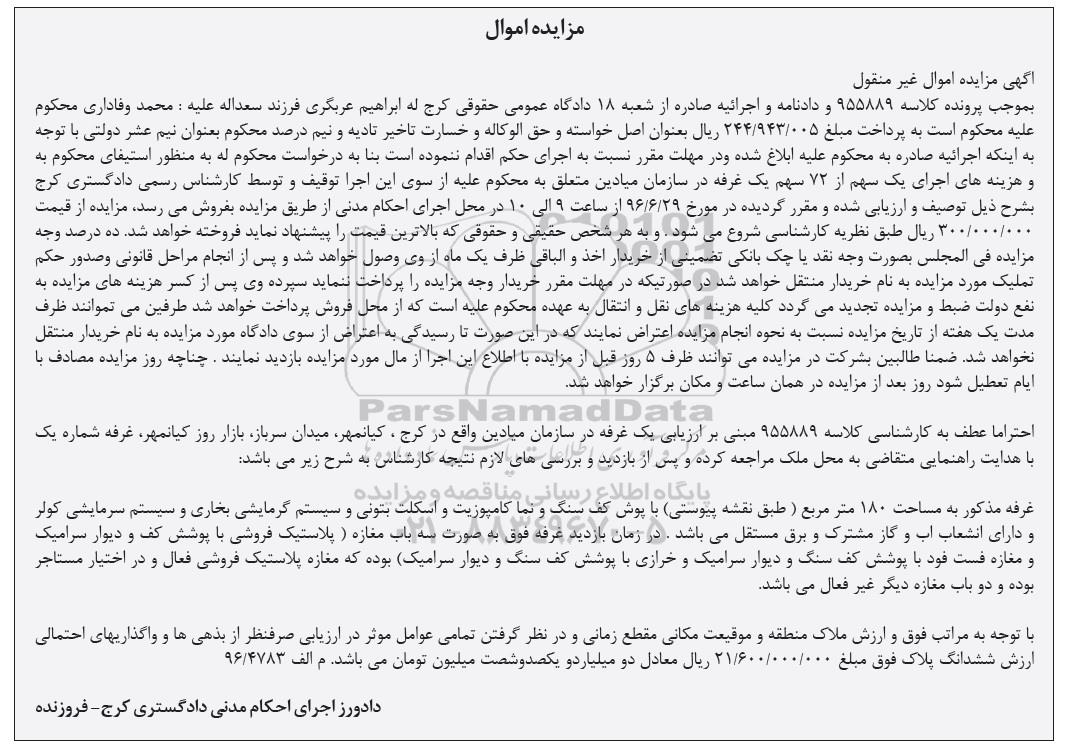 مزایده اموال
اگهی مزایده اموال غیر منقول
بموجب پرونده کلاسه ۹۵۵۸۸۹ و دادنامه و اجرائیه صادره از شعبه ۱۸ دادگاه عمومی حقوقی کرج له ابراهیم عربگری فرزند سعداله علیه : محمد وفاداری محکوم
علیه محکوم است به پرداخت مبلغ ۲۴۴/۹۴۳/۰۰۵ ریال بعنوان اصل خواسته و حق الوکاله و خسارت تاخیر تادیه و نیم درصد محکوم بعنوان نیم عشر دولتی با توجه
به اینکه اجرائیه صادره به محکوم علیه ابلاغ شده ودر مهلت مقرر نسبت به اجرای حکم اقدام ننموده است بنا به درخواست محکوم له به منظور استیفای محکوم به
و هزینه های اجرای یک سهم از ۷۲ سهم یک غرفه در سازمان میادین متعلق به محکوم علیه از سوی این اجرا توقیف و توسط کارشناس رسمی دادگستری کرج
بشرح ذیل توصیف و ارزیابی شده و مقرر گردیده در مورخ ۹۶/۶/۲۹ از ساعت ۹ الی ۱۰ در محل اجرای احکام مدنی از طریق مزایده بفروش می رسد، مزایده از قیمت
۳۰۰/۰۰۰/۰۰۰ ریال طبق نظریه کارشناسی شروع می شود . و به هر شخص حقیقی و حقوقی که بالاترین قیمت را پیشنهاد نماید فروخته خواهد شد. ده درصد وجه
مزایده فی المجلس بصورت وجه نقد یا چک بانکی تضمینی از خریدار اخذ و الباقی ظرف یک ماه از وی وصول خواهد شد و پس از انجام مراحل قانونی وصدور حکم
تملیک مورد مزایده به نام خریدار منتقل خواهد شد در صورتیکه در مهلت مقرر خریدار وجه مزایده را پرداخت ننماید سپرده وی پس از کسر هزینه های مزایده به
نفع دولت ضبط و مزایده تجدید می گردد کلیه هزینه های نقل و انتقال به عهده محکوم علیه است که از محل فروش پرداخت خواهد شد طرفین می تموانند ظرف
مدت یک هفته از تاریخ مزایده نسبت به نحوه انجام مزایده اعتراض نمایند که در این صورت تا رسیدگی به اعتراض از سوی دادگاه مورد مزایده به نام خریدار منتقل
نخواهد شد. ضمنا طالبین بشرکت در مزایده می توانند ظرف ۵ روز قبل از مزایده با اطلاع این اجرا از مال مورد مزایده بازدید نمایند . چناچه روز مزایده مصادف با
ایام تعطیل شود روز بعد از مزایده در همان ساعت و مکان برگزار خواهد شد.
ParsNamadData
احتراما عطف به کارشناسی کلاسه ۹۵۵۸۸۹ مبنی بر ارزیابی یک غرفه در سازمان میادین واقع در کرج ، کیانمهر، میدان سرباز، بازار روز کیانمهر، غرفه شماره یک
با هدایت راهنمایی متقاضی به محل ملک مراجعه کرده و پس از بازدید و بررسی های لازم نتیجه کارشناس به شرح زیر می باشد:
پایگاه اطلاع رسانی مناقصه و مزایده
غرفه مذکور به مساحت ۱۸۰ متر مربع ( طبق نقشه پیوستی) با پوش کف سنگ و نما کامپوزیت و اسکلت بتونی و سیستم گرمایشی بخاری و سیستم سرمایشی کولر
و دارای انشعاب اب و گاز مشترک و برق مستقل می باشد . در زمان بازدید غرفه فوق به صورت سه باب مغازه ( پلاستیک فروشی با پوشش کف و دیوار سرامیک
۰۲۱-۸۸۳۴۹۶۷۰-۵
و مغازه فست فود با پوشش کف سنگ و دیوار سرامیک و خرازی با پوشش کف سنگ و دیوار سرامیک) بوده که مغازه پلاستیک فروشی فعال و در اختیار مستاجر
بوده و دو باب مغازه دیگر غیر فعال می باشد.
با توجه به مراتب فوق و ارزش ملاک منطقه و موقیعت مکانی مقطع زمانی و در نظر گرفتن تمامی عوامل موثر در ارزیابی صرفنظر از بذهی ها و واگذاریهای احتمالی
ارزش ششدانگ پلاک فوق مبلغ ۲۱/۶۰۰/۰۰۰/۰۰۰ ریال معادل دو میلیاردو یکصدوشصت میلیون تومان می باشد. م الف ۹۶/۴۷۸۳
دادورز اجرای احکام مدنی دادگستری کرج- فروزنده